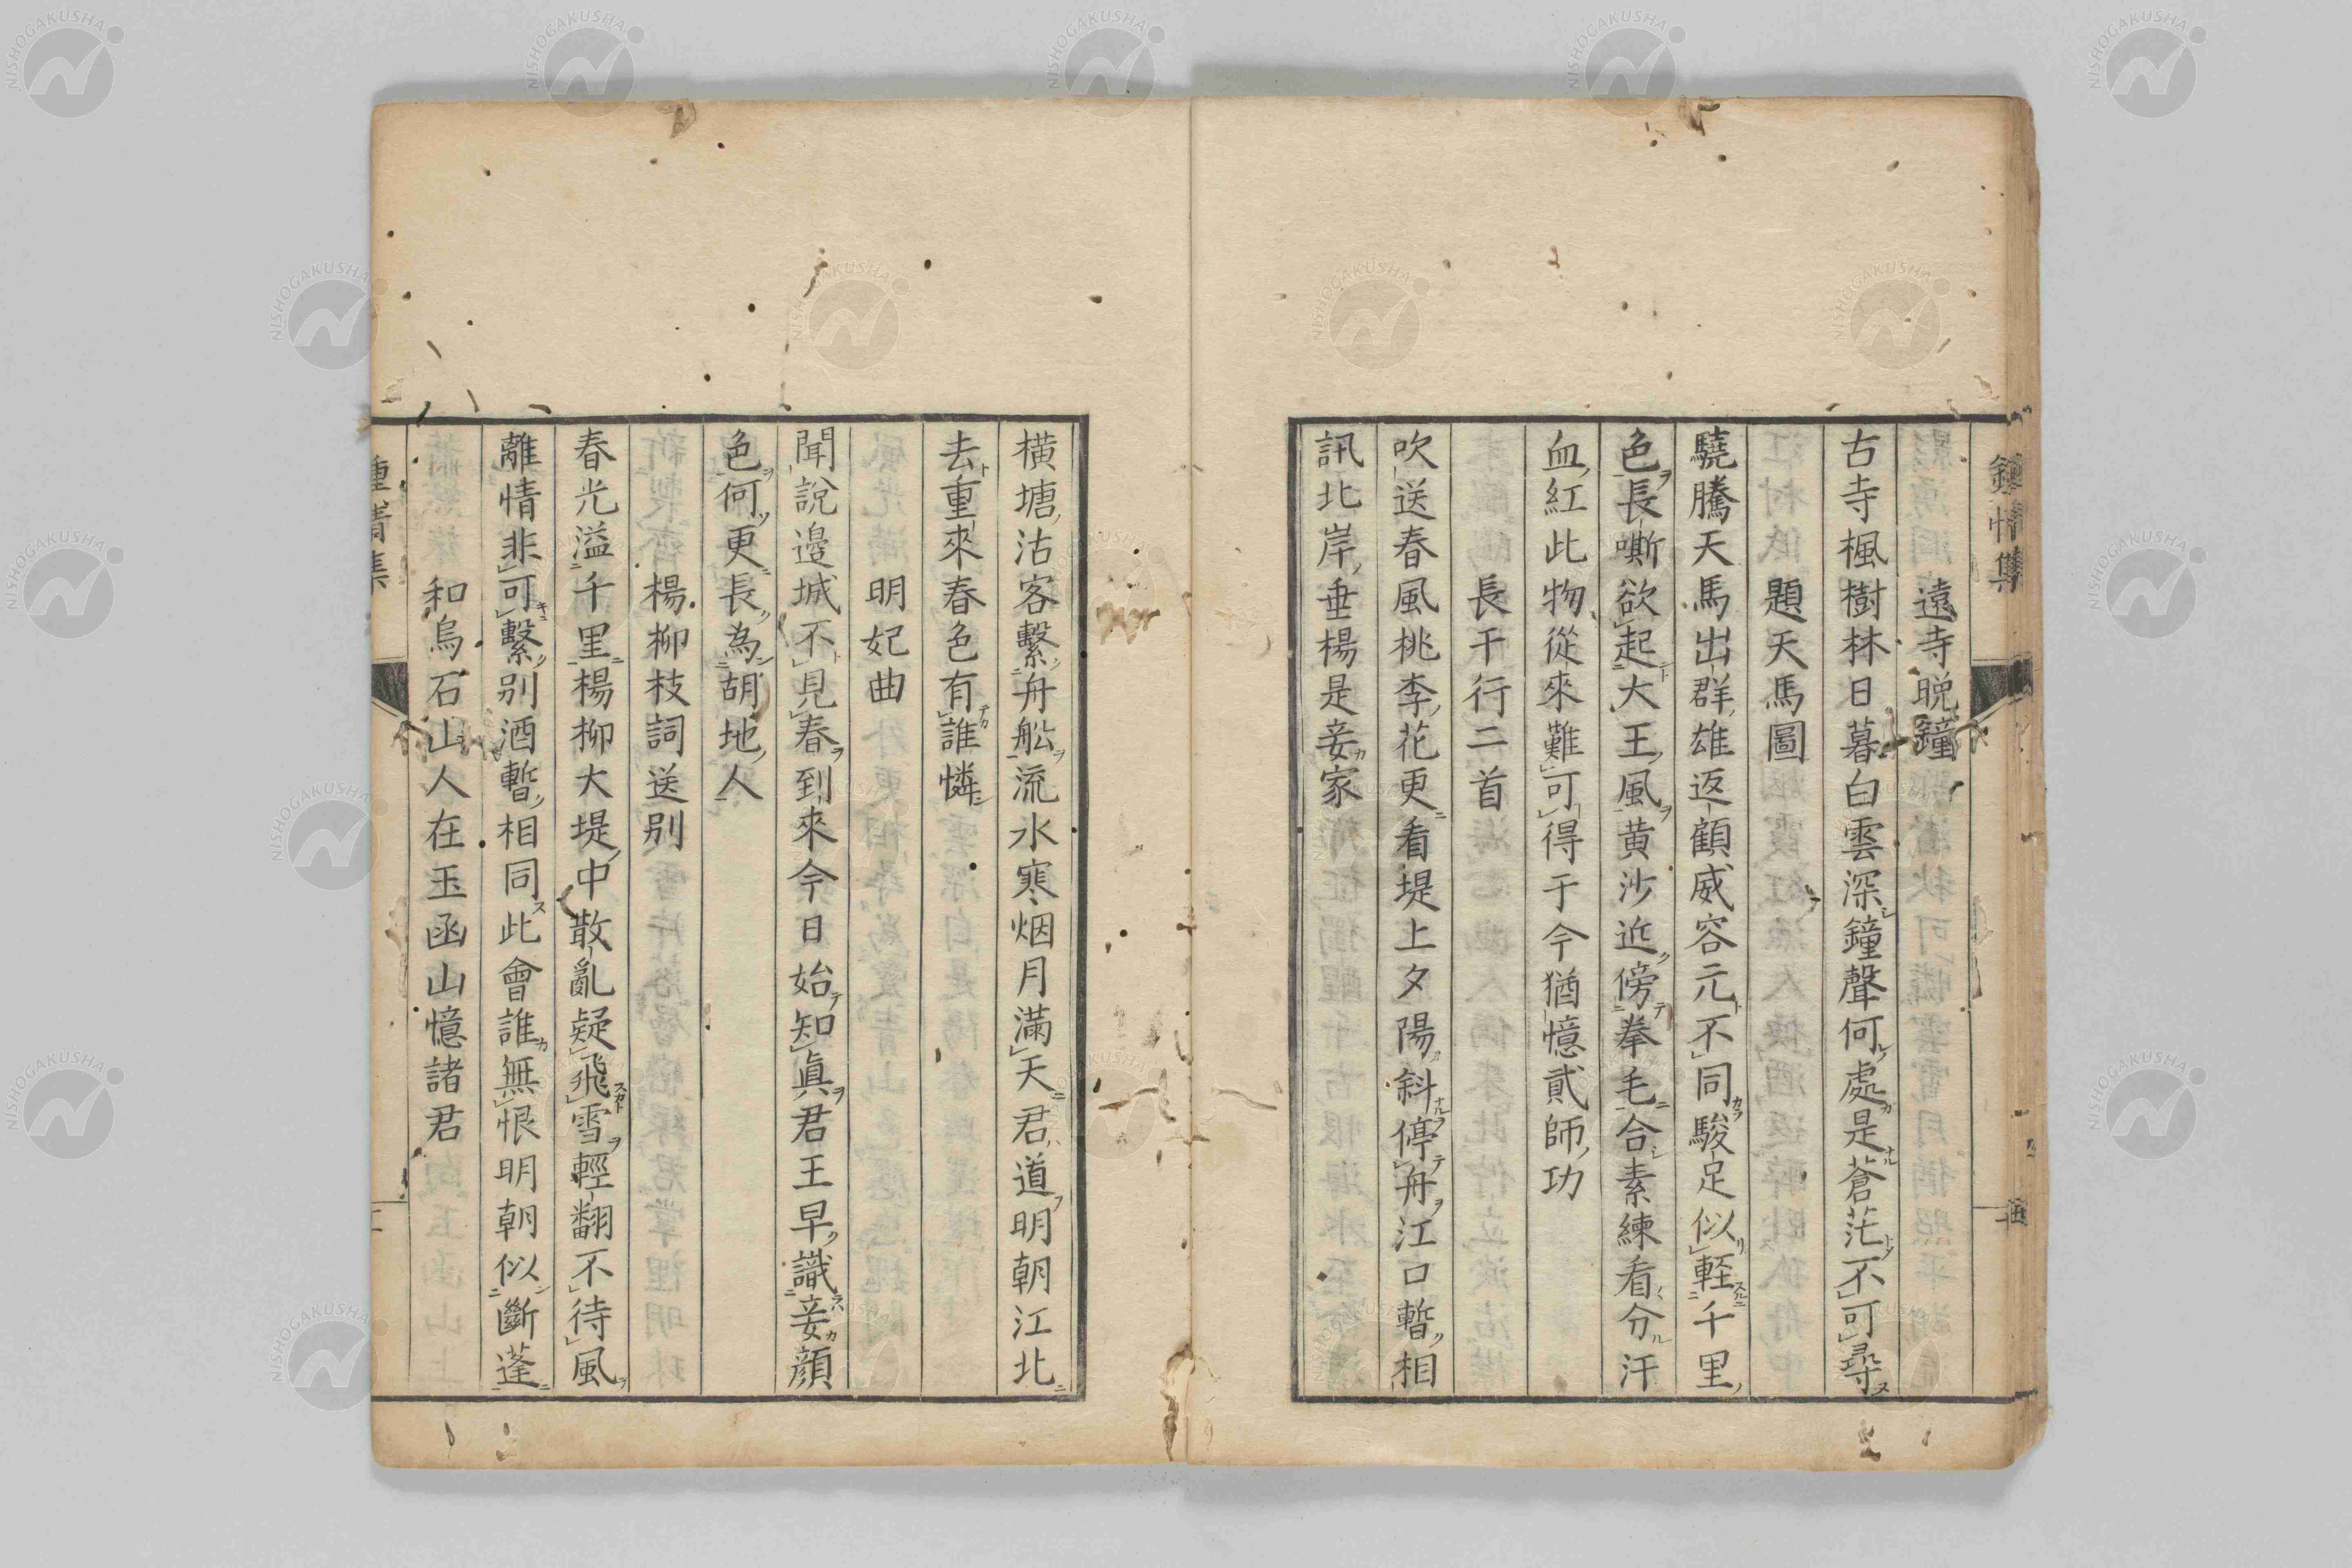 鍾情集
遠寺晩鐘
古寺楓樹林日暮白雲深鐘聲何處是蒼茫不可尋
題天馬圖
驍騰天馬出群雄返顧威容元不同駿足似輕千里
色長嘶欲起大王風黄沙近傍拳毛合素練看分汗
血紅此物從來難可得于今猶憶貳師功
長干行二首
吹送春風桃李花更看堤上夕陽斜停舟江口暫相
訊北岸垂楊是妾家
橫塘沽客繫舟舩流水寒烟月滿天君道明朝江北
去重來春色有誰憐
明妃曲
聞說邊城不見春到來今日始知眞君王早識妾顏
色何更長為胡地人
楊柳枝詞送別
春光溢千里楊柳大堤中散亂疑飛雪輕翻不待風
離情非可繫別酒暫相同此會誰無恨明朝似斷蓬
和烏石山人在玉函山憶諸君
NISHOGAKUSHA